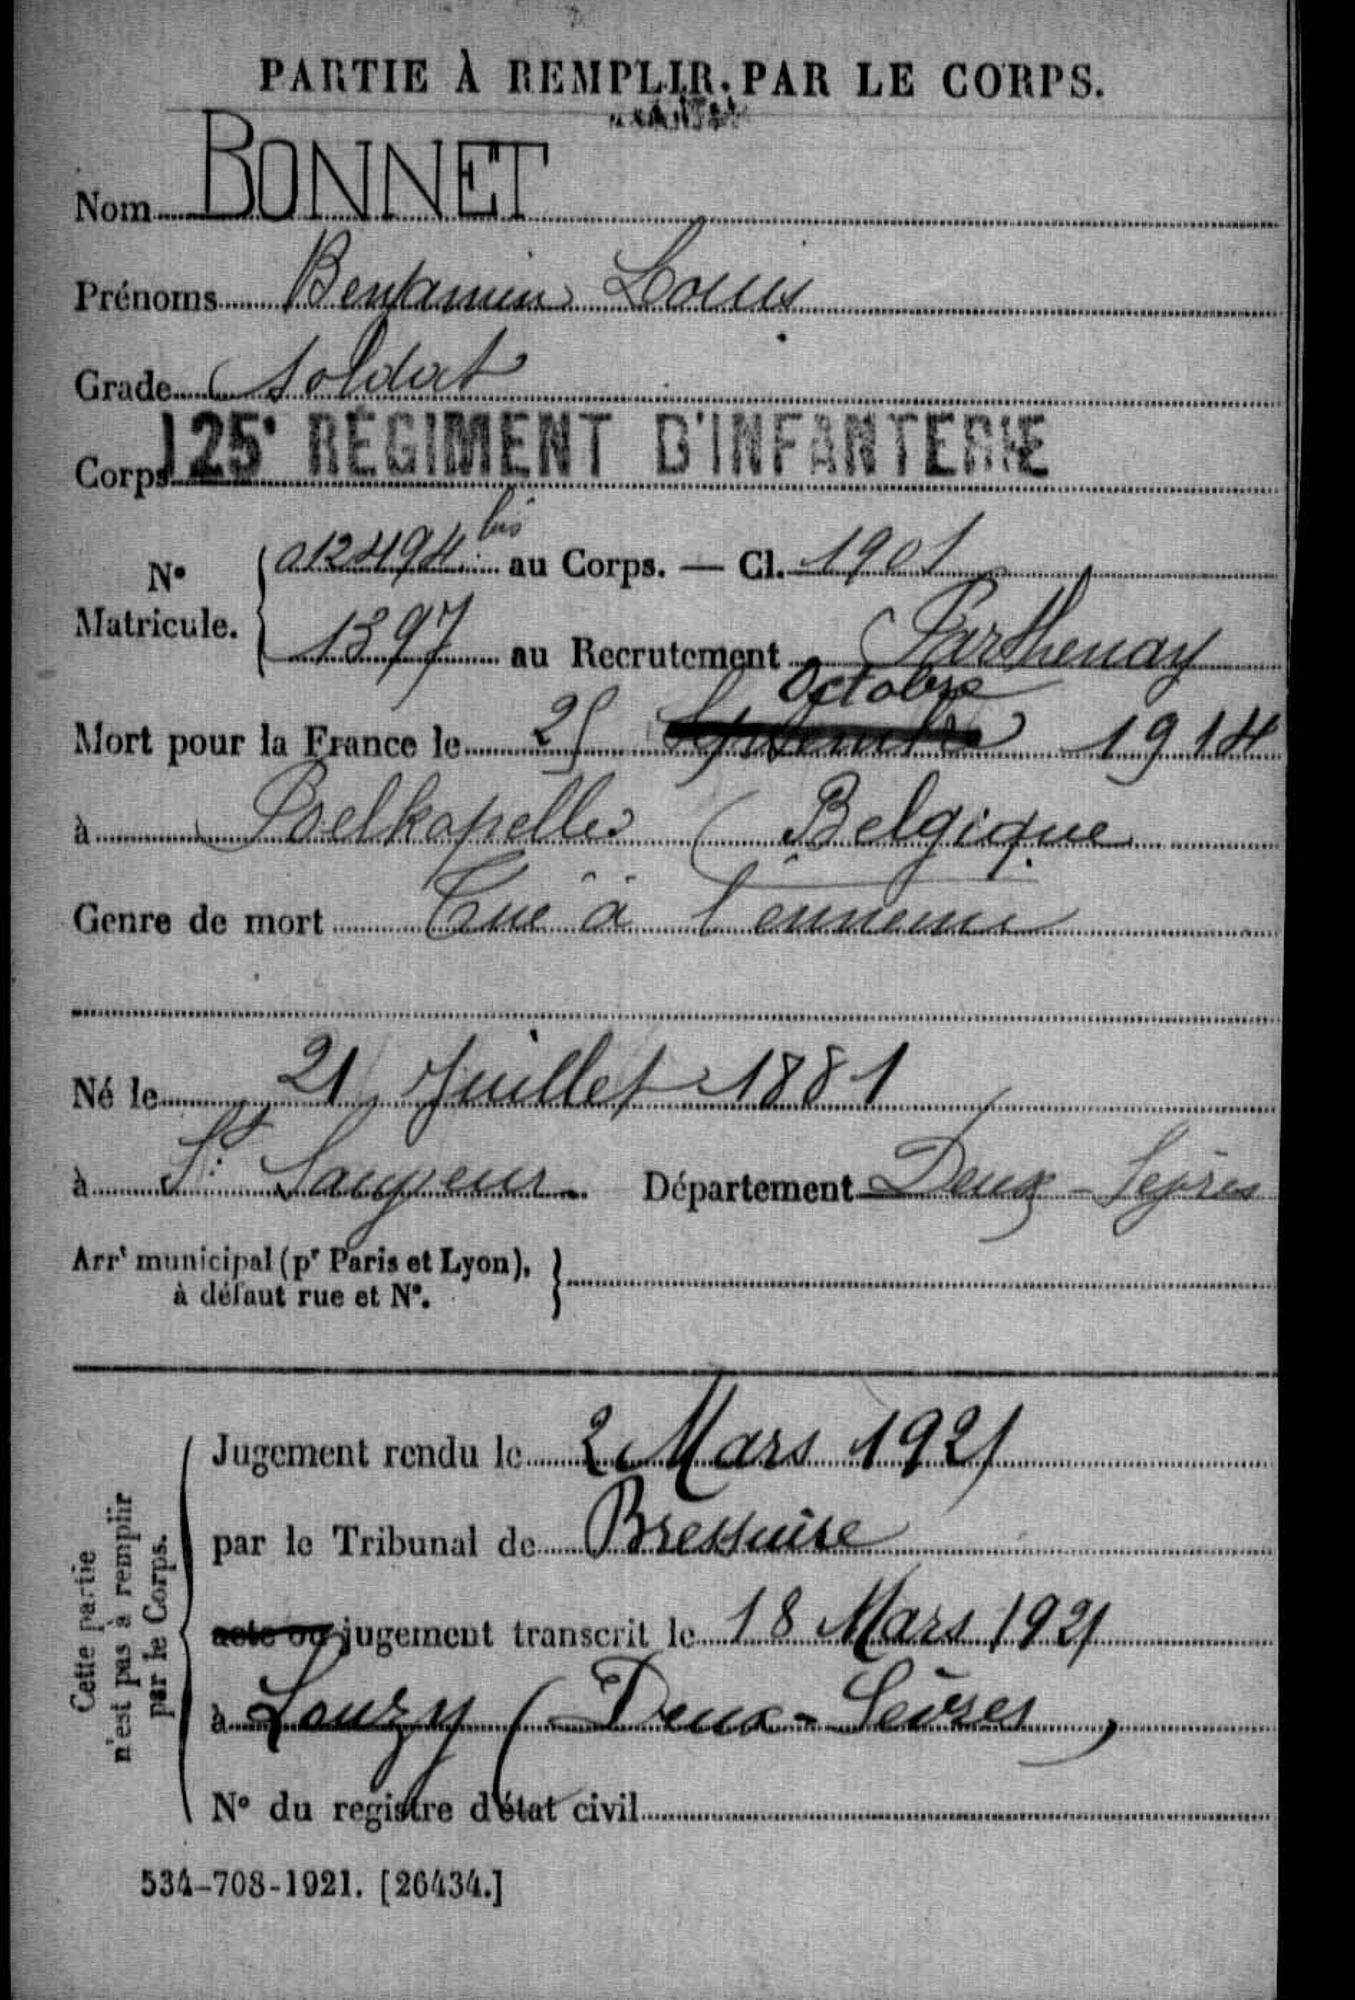 PARTIE À REMPLIR PAR LE CORPS.
Nom BONNET
Prénoms Benjamin Louis
Grade Soldat
Corps 125e RÉGIMENT D'INFANTERIE
N° Matricule. { 012494 bis au Corps. — Cl. 1901
1397 au Recrutement Parthenay
Octobre
Mort pour la France le 25 Septembre 1914
à Poelkapelle (Belgique
Genre de mort Tué à l'ennemi
Né le 21 Juillet 1881
à St Sauveur Département Deux-Sèvres
Arrt municipal (pr Paris et Lyon), à défaut rue et N°. }
Cette partie n'est pas à remplir par le Corps.
Jugement rendu le 2 Mars 1921
par le Tribunal de Bressuire
acte ou jugement transcrit le 18 Mars 1921
à Louzy (Deux-Sèvres)
N° du registre d'état civil
534-708-1921. [26434.]